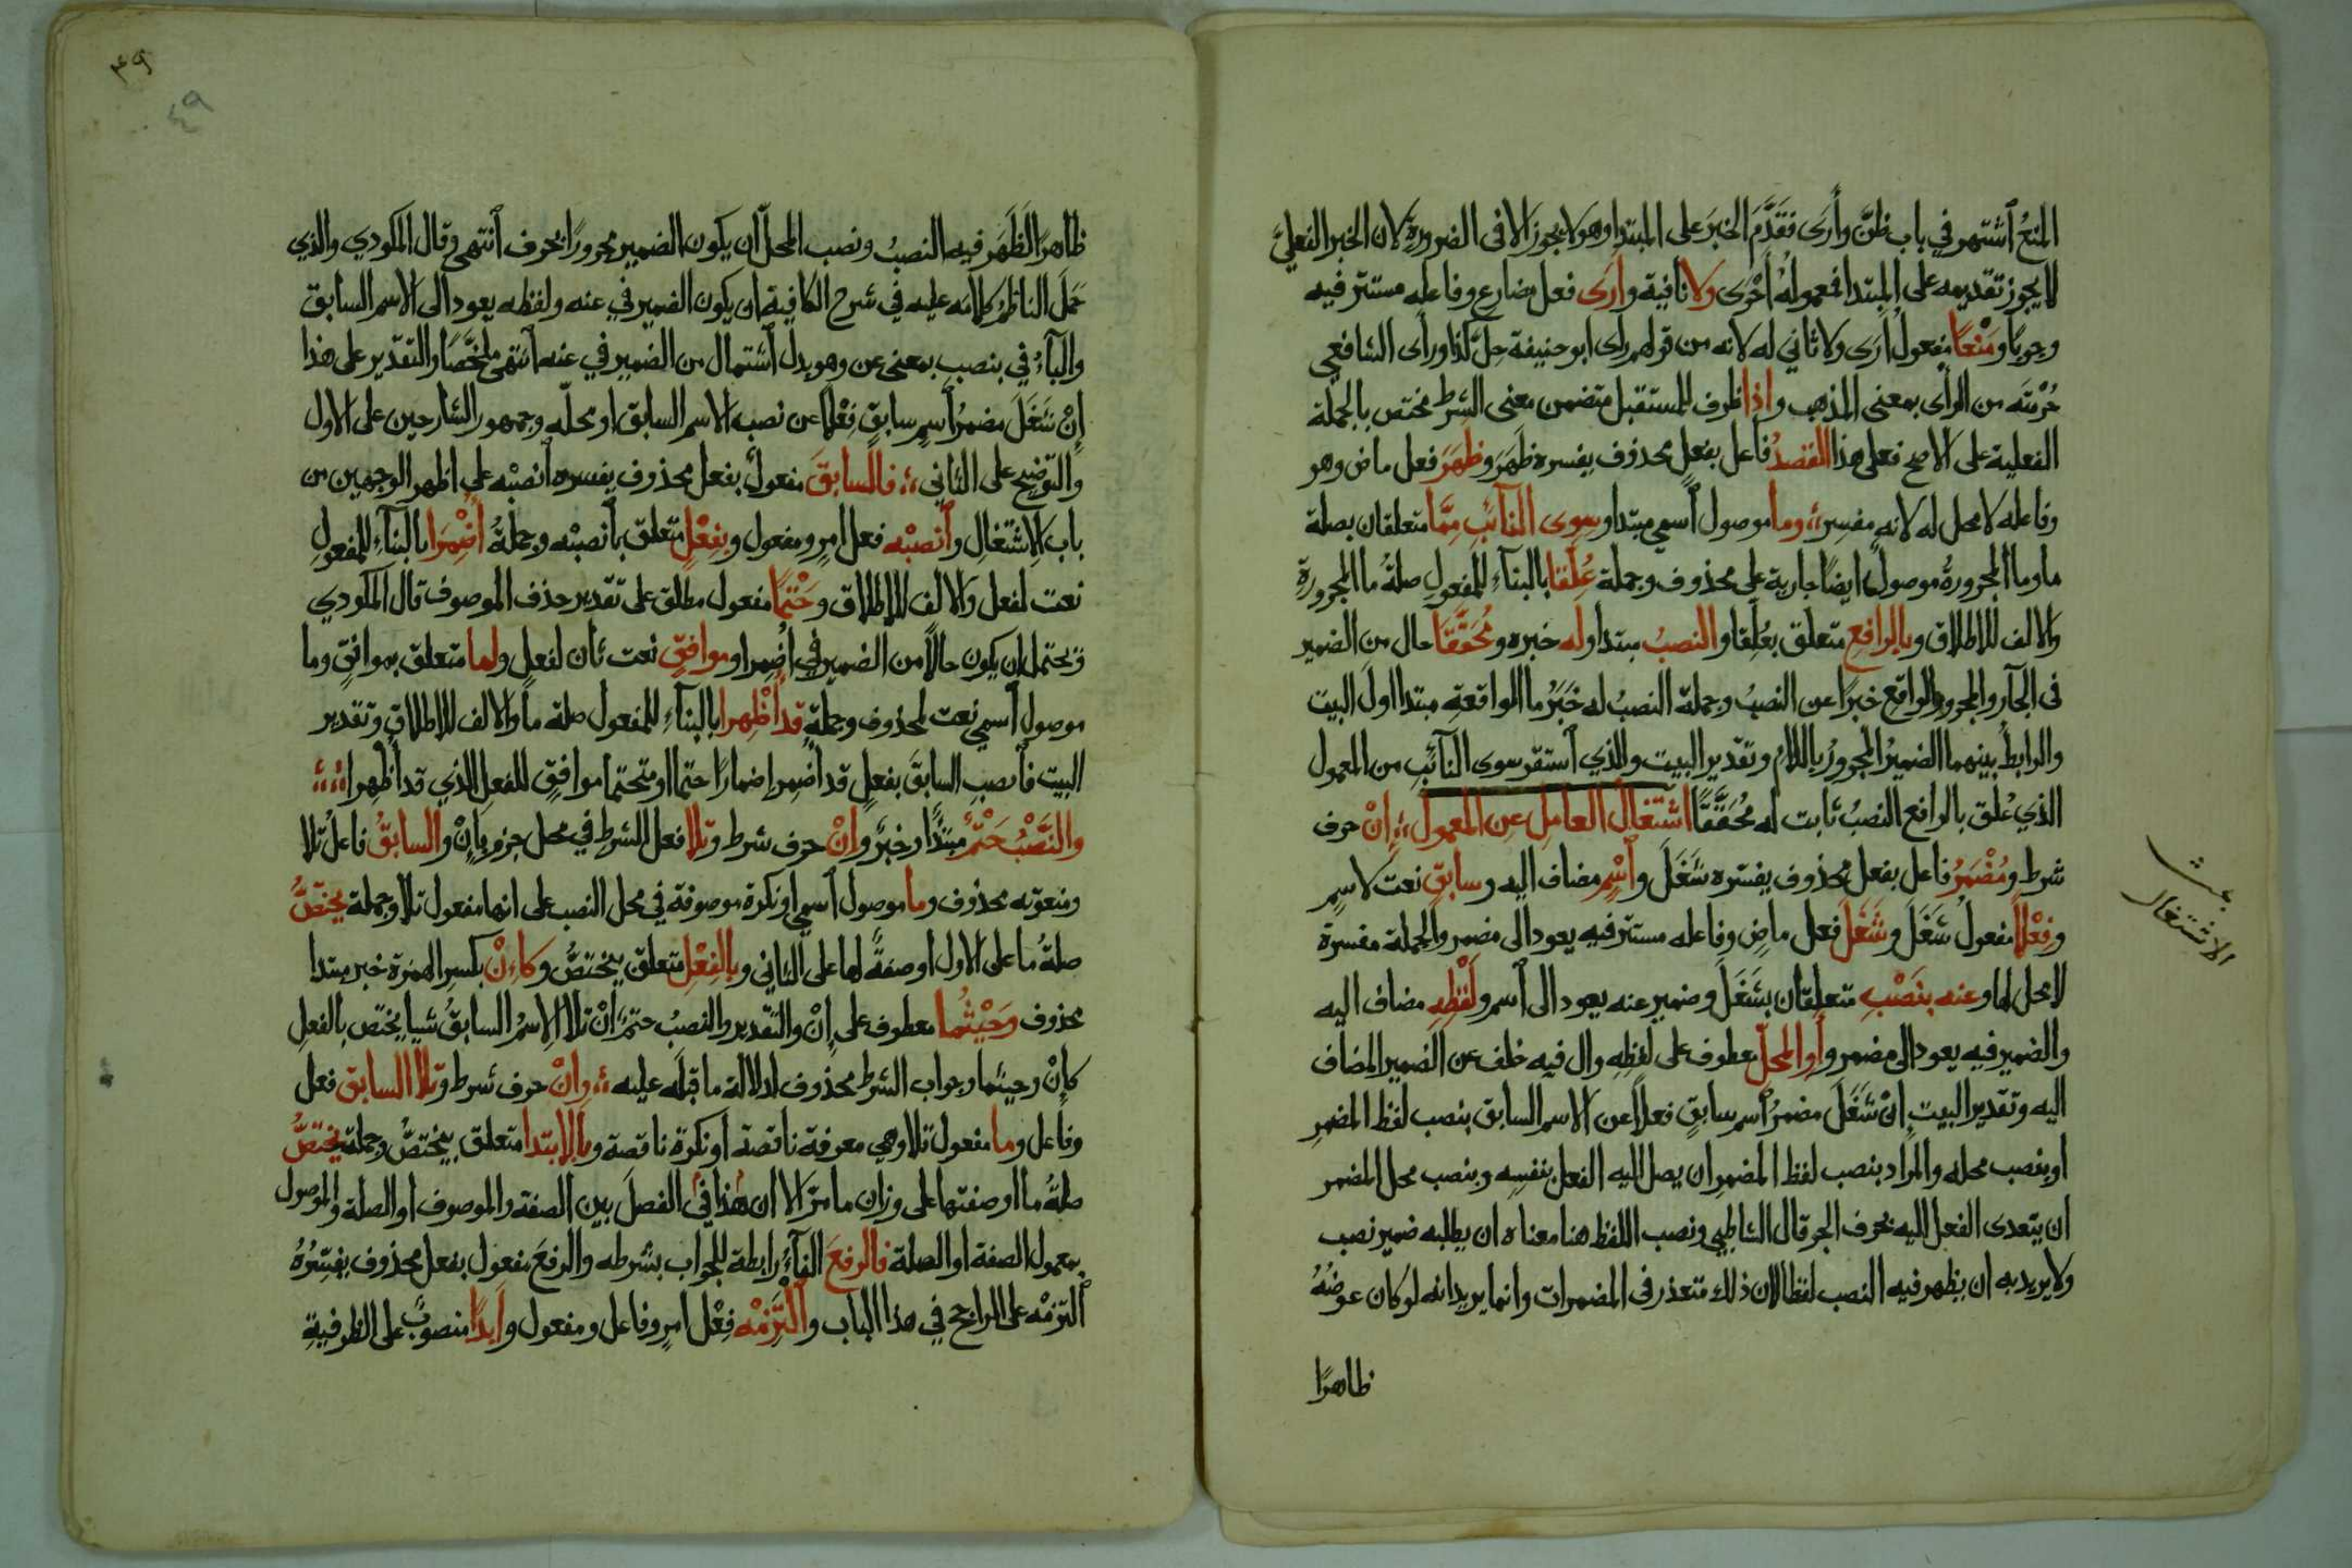 المنعُ اشتهر في باب ظنّ وأرى فقدّم الخبرَ على المبتدا وهو لا يجوز الا في الضرورة لان الخبر الفعليّ
لا يجوز تقديمه على المبتدا فمعموله أحرى ولا نافية وأرى فعل مضارع وفاعله مستتر فيه
وجوبا ومنعًا مفعول أرى ولا ثاني له لانه من قولهم رأى ابو حنيفة حلّ كذا ورأى الشافعي
حُرمتَه من الرأى بمعنى المذهب واذا ظرف للمستقبل متضمن معنى الشرط مختص بالجملة
الفعلية على الاصح فعلى هذا القصدُ فاعل بفعل محذوف يفسره ظَهَرَ وظَهَرَ فعل ماض وهو
وفاعله لا محل له لانه مفسر وما موصول اسمي مبتدا وسوى النائبِ مِمّا متعلقان بصلة
ما وما المجرورة موصول ايضًا جارية على محذوف وجملة عُلّقا بالبناء للمفعول صلةُ ما المجرورة
والالف للاطلاق وبالرافعِ متعلق بعُلّقا والنصبُ مبتدا وله خبره ومُحَقَّقًا حال من الضمير
في الجار والمجرور الواقع خبرًا عن النصبُ وجملة النصبُ له خَبَرُ ما الواقعةِ مبتدا اول البيت
والرابطُ بينهما الضميرُ المجرورُ باللام وتقدير البيت والذي استقر سوى النائبِ من المعمول
الذي عُلق بالرافع النصبُ ثابت له مُحَقَّقًا اشتغال العامل عن المعمول إنْ حرف
شرط ومُضْمَرُ فاعل بفعل محذوف يفسّره شَغَلَ واسْمٍ مضاف اليه وسابقٍ نعت لاسمٍ
وفِعْلًا مفعولُ شَغَلَ وشَغَلَ فعل ماضٍ وفاعله مستتر فيه يعود الى مضمر والجملة مفسرة
لا محل لها وعنه بنَصْبِ متعلقان بشَغَلَ وضمير عنه يعود الى اسم ولَفْظِه مضاف اليه
والضمير فيه يعود الى مضمر وأوِ المحلّ معطوف على لفظِه وال فيه خلف عن الضمير المضاف
اليه وتقدير البيت إنْ شَغَلَ مضمرُ اسمٍ سابقٍ فعلًا عن الاسم السابق بنصب لفظ المضمرِ
او بنصب محله والمراد بنصب لفظ المضمر ان يصل اليه الفعل بنفسِه وبنصب محل المضمر
ان يتعدى الفعل اليه بحرف الجر قال الشاطبي ونصب اللفظ هنا معناه ان يطلبه ضمير نصب
ولا يريد به ان يظهر فيه النصب لفظا لان ذلك متعذر في المضمرات وانما يريد انه لو كان عوضُهُ
ظاهرًا
بحث
الاشتغال
٤٩
٤٩
ظاهرًا لَظَهَر فيه النصبُ ونصب المحلّ أن يكون الضمير مجرورًا بحرف انتهى وقال المكودي والذي
حَمَل الناظمُ كلامَه عليه في شرح الكافية ان يكون الضمير في عنه ولفظه يعود الى الاسم السابق
والباءُ في بنصب بمعنى عن وهو بدل اشتمال من الضمير في عنه انتهى ملخّصًا والتقدير على هذا
إنْ شَغَلَ مضمرُ اسمٍ سابقٍ فِعْلًا عن نصب الاسم السابق او محلّه وجمهور الشارحين على الاول
والتوضيح على الثاني فالسابقَ مفعولٌ بفعل محذوف يفسره انصبْه على اظهر الوجهين من
باب الاشتغالِ وانصبْه فعل امرٍ ومفعول وبفِعْلٍ متعلق بانصبْه وجملةُ أُضْمِرَا بالبناء للمفعولِ
نعت لفعل والالف للاطلاق وحَتْمًا مفعول مطلق على تقدير حذف الموصوف قال المكودي
ويحتمل ان يكون حالًا من الضمير في أُضمِرا وموافقٍ نعت ثان لفعلٍ ولما متعلق بموافقٍ وما
موصول اسمي نعت لمحذوف وجملة قد أُظْهِرا بالبناءِ للمفعول صلة ما والالف للاطلاقِ وتقدير
البيت فانصبِ السابقَ بفعلٍ قد أُضمِر إضمارًا حتمًا او متحتمًا موافقٍ للفعل الذي قد أُظهِرا
والنَّصْبُ حَتْمٌ مبتدأ وخبرٌ وإنْ حرف شرط وتلا فعل الشرط في محل جزم بإنْ والسابقُ فاعلُ تلا
ومنعوته محذوف وما موصول اسمي او نكرة موصوفة في محل النصب على انها مفعول تلا وجملة يختصُّ
صلةُ ما على الاول او صفةٌ لها على الثاني وبالفِعْلِ متعلق بيختصُّ وكإنْ بكسر الهمزة خبر مبتدا
محذوف وحَيْثُما معطوف على إنْ والتقدير والنصبُ حتمٌ إنْ تلا الاسمُ السابقُ شيا يختص بالفعلِ
كإنْ وحيثما وجواب الشرط محذوف لدلالة ما قبله عليه وإنْ حرف شرط وتلا السابق فعل
وفاعل وما مفعول تلا وهي معرفة ناقصة او نكرة ناقصة وبالابتدا متعلق بيختصُّ وجملة يختصُّ
صلةُ ما او صفتها على وزان ما مرّ الا ان هذا في الفصل بين الصفة والموصوف او الصلة والموصول
بمعمول الصفة او الصلة فالرفعَ الفاءُ رابطة للجواب بشرطه والرفعَ مفعول بفعل محذوف يفسّرُهُ
التزمْه على الراجح في هذا الباب والْتَزِمْه فِعْل امرٍ وفاعل ومفعول وأبدًا منصوبٌ على الظرفيةِ